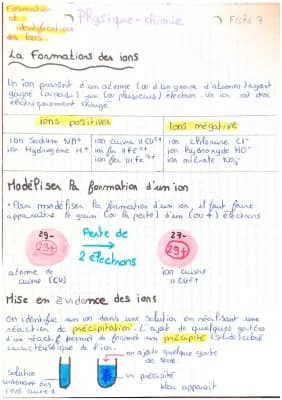 Formation
et
identification
des Ions
Physique-chimie
Fiche 7
La Formations des ions
Un ion provient d'un atome (ou d'un groupe d'atomes) ayant
gagné (ou perdu) un (ou plusieurs) électron. Un ion est donc
électriquement chargé
ions positives
ions négative
ion Sodium NA+
ion Hydrogène H+
ion cuivre II CU2+
ion fer II FE2+
ion fer III Fe3+
ion chlorure Cl-
ion Hydroxyde HO-
ion nitrate NO3-
Modéliser la formation d'un ion
• Pour modéliser la formation d'un ion, il faut faire
apparaître le gain (ou la perte) d'un (ou +) électrons
29-
29+
atome de
cuivre (CU)
Perte de
2 électrons
27-
29+
ion cuivre
II CU2+
Mise en Évidence des ions
On identifie un ion dans une solution en réalisant une
réaction de précipitation. L'ajout de quelques gouttes
d'un réactif permet de former un précipité (solide) coloré
caractéristique de l'ion.
on ajoute quelque goutte
de soude
Solution
contenant des
ions cuivre II
un précipité
bleu apparait